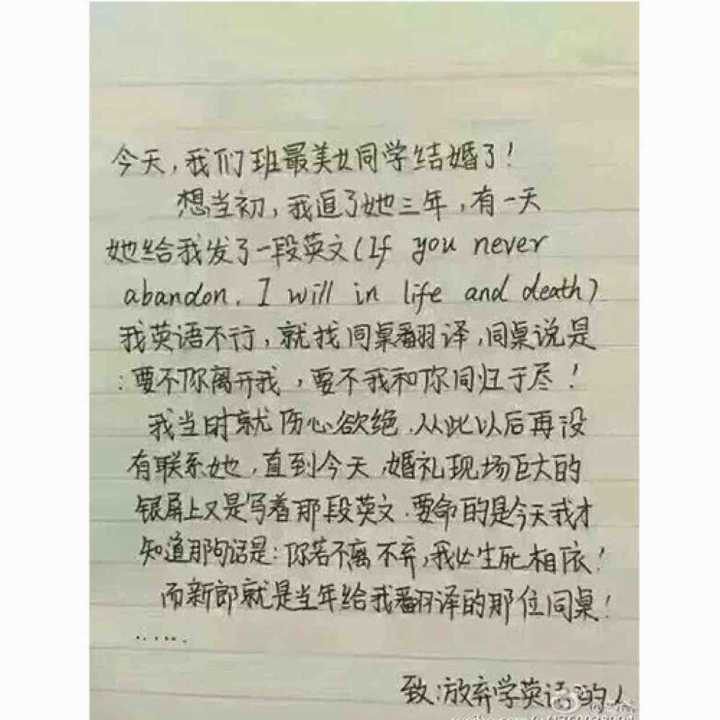 今天,我们班最美女同学结婚了!
想当初,我追了她三年,有一天
她给我发了一段英文(If you never
abandon, I will in life and death)
我英语不行,就找同桌翻译,同桌说是
:要不你离开我,要不我和你同归于尽!
我当时就伤心欲绝,从此以后再没
有联系她,直到今天,婚礼现场巨大的
银屏上又是写着那段英文.要命的是今天我才
知道那句话是:你若不离不弃,我必生死相依!
而新郎就是当年给我翻译的那位同桌!
......
致:放弃学英语的人